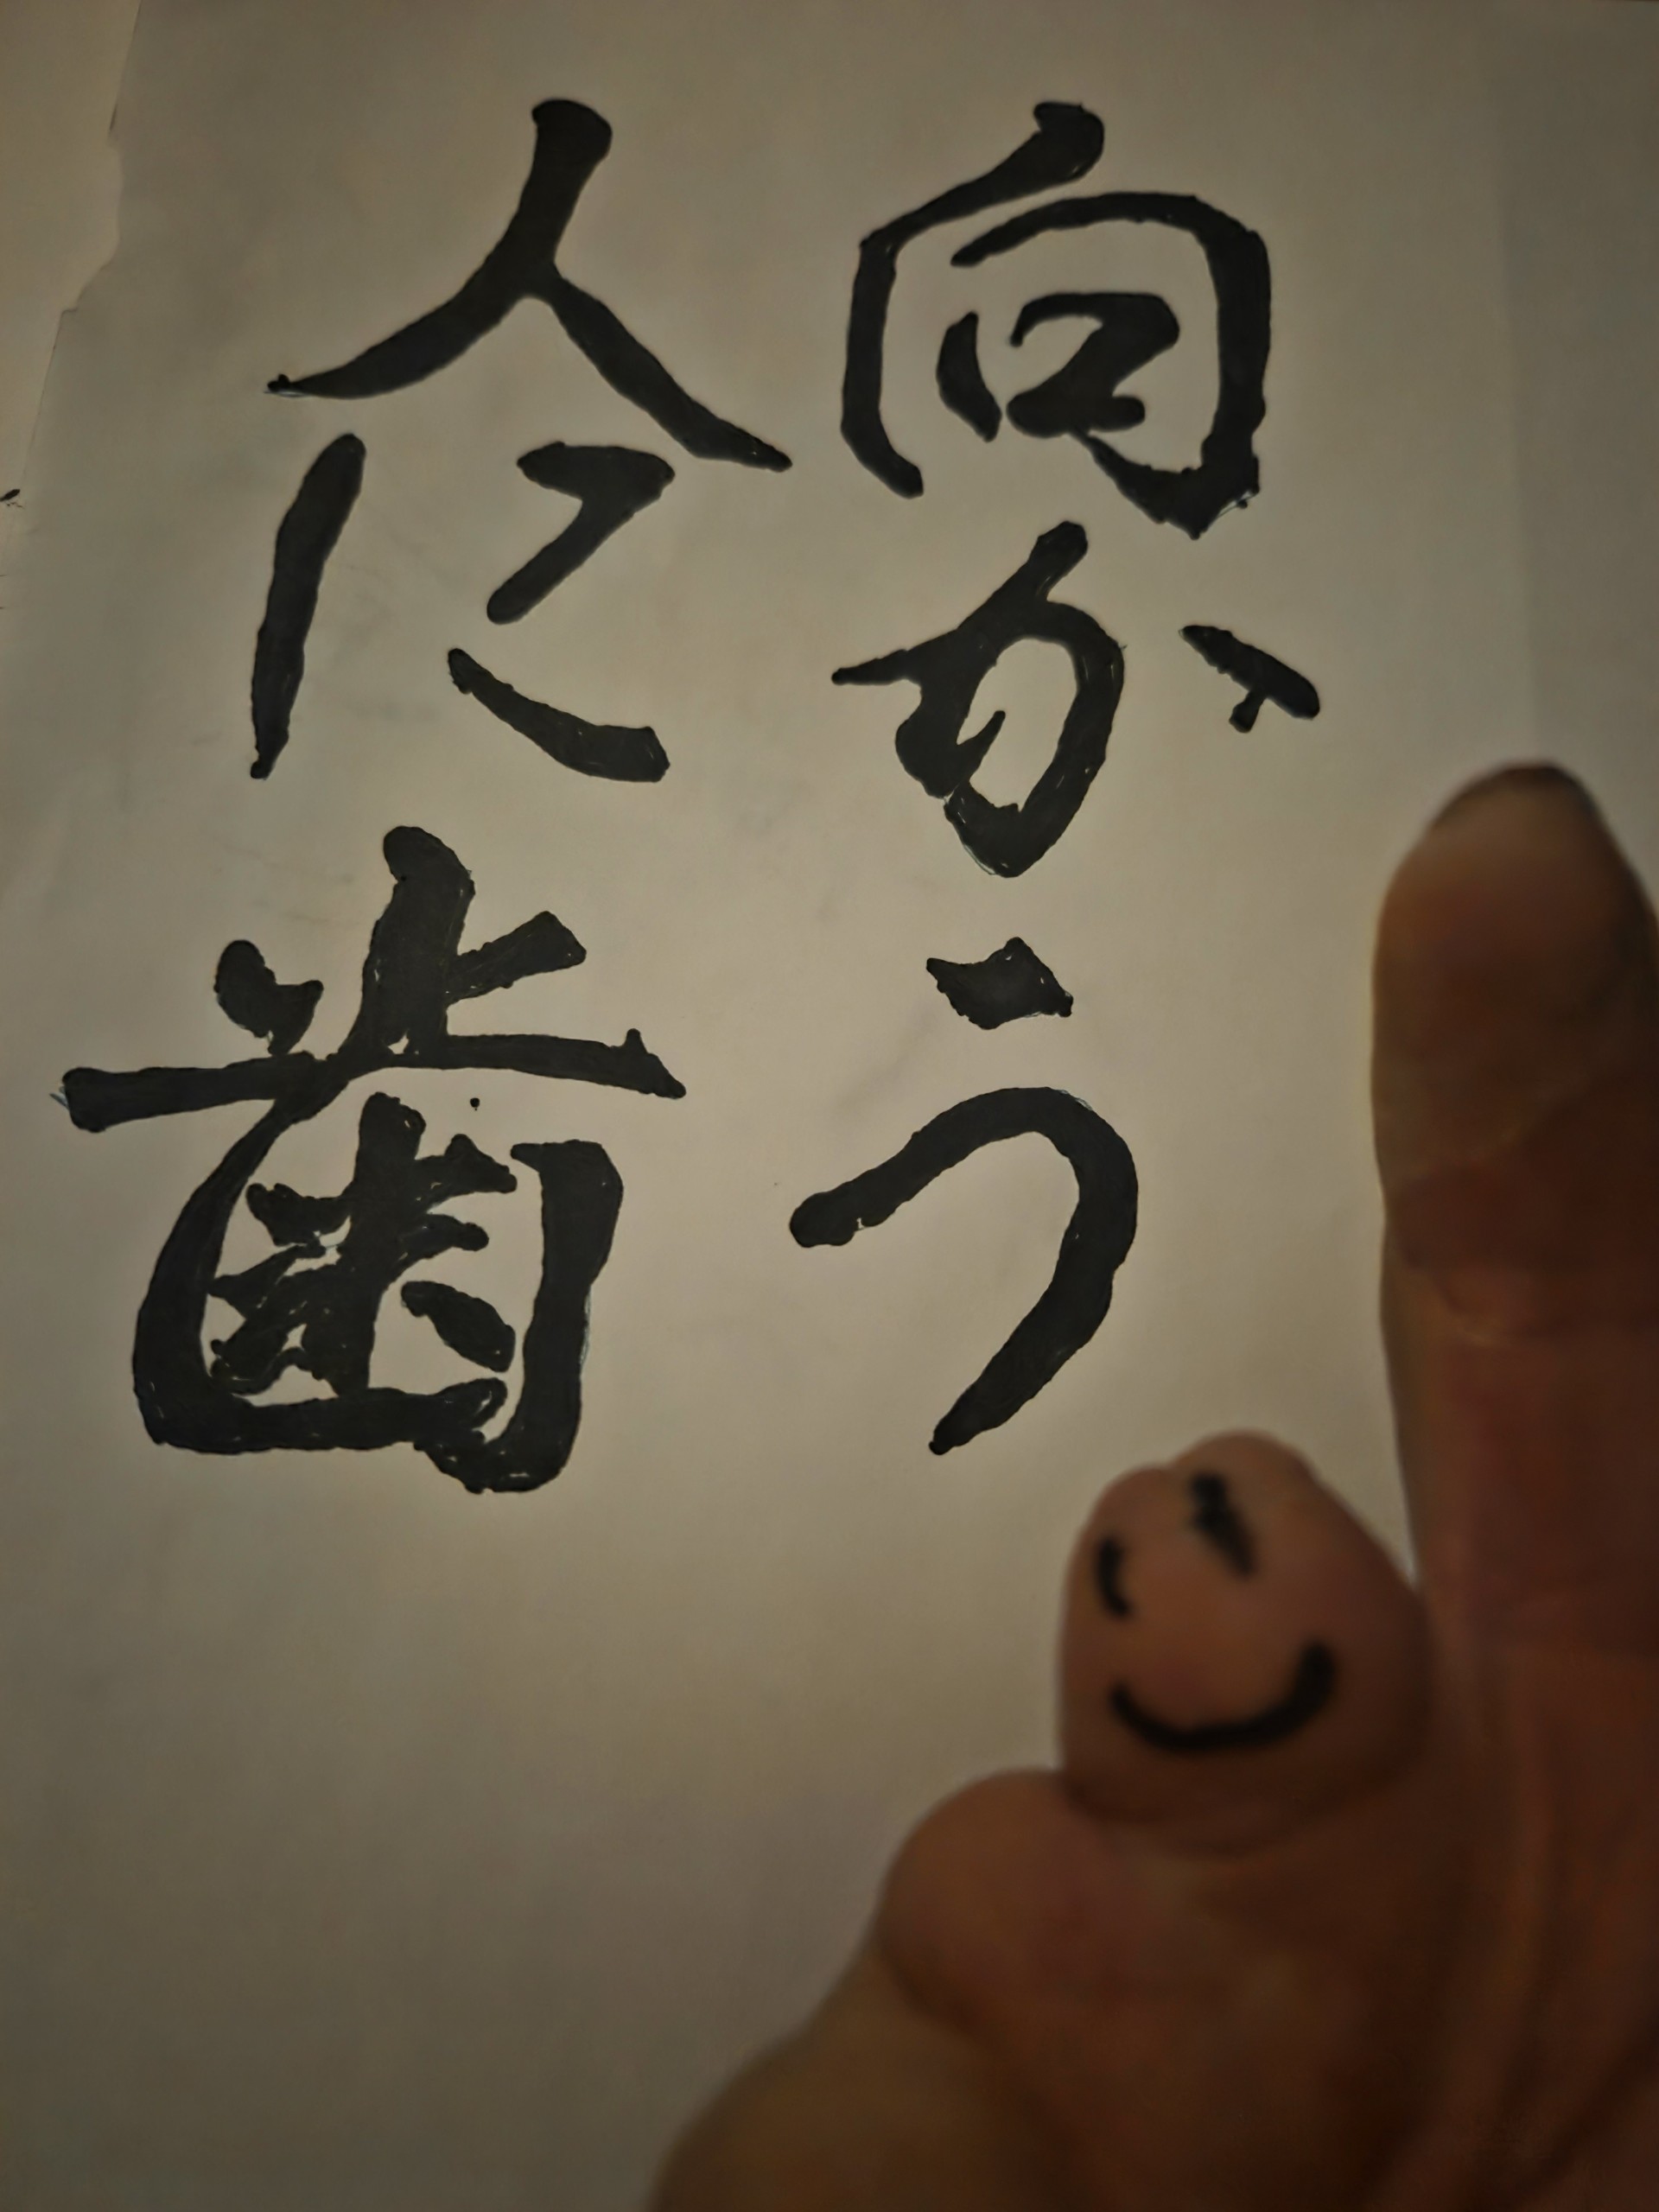 向かう
人に歯